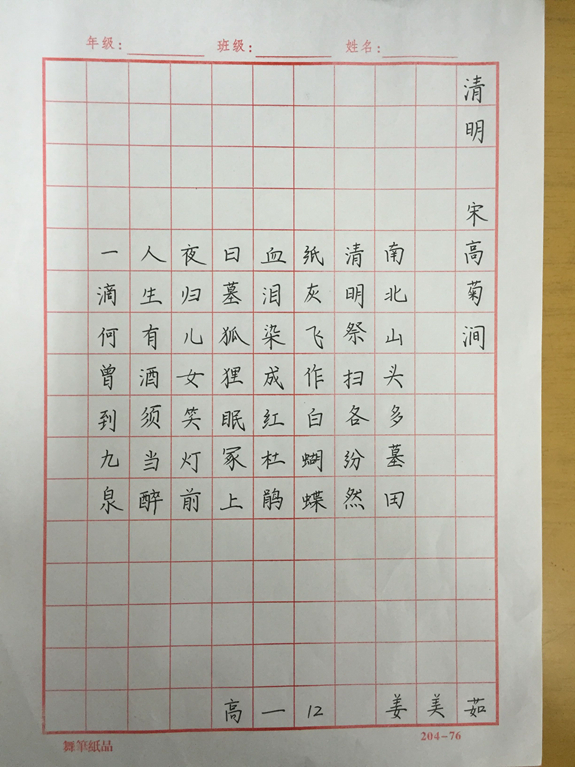 年级：
班级：
姓名：
清明 宋高菊涧
南北山头多墓田
清明祭扫各纷然
纸灰飞作白蝴蝶
血泪染成红杜鹃
曰墓狐狸眠冢上
夜归儿女笑灯前
人生有酒须当醉
一滴何曾到九泉
高一12 姜美茹
舞筆紙品
204-76